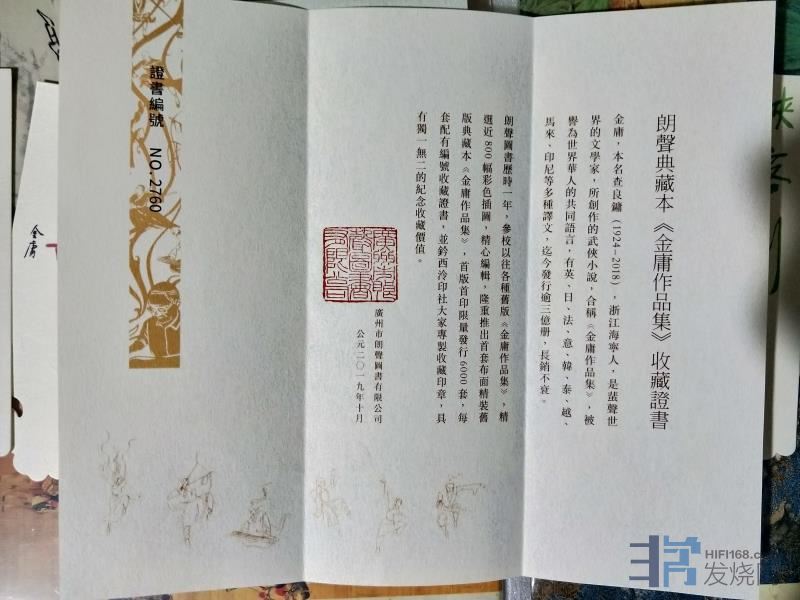 朗聲典藏本《金庸作品集》收藏證書
金庸，本名查良鏞（1924－2018），浙江海寧人，是蜚聲世
界的文學家，所創作的武俠小說，合稱《金庸作品集》，被
譽為世界華人的共同語言，有英、日、法、意、韓、泰、越、
馬來、印尼等多種譯文，迄今發行逾三億册，長銷不衰。
朗聲圖書歷時一年，參校以往各種舊版《金庸作品集》，精
選近800幅彩色插圖，精心編輯，隆重推出首套布面精裝舊
版典藏本《金庸作品集》，首版首印限量發行6000套，每
套配有編號收藏證書，並鈐西泠印社大家專製收藏印章，具
有獨一無二的紀念收藏價值。
廣州市朗聲圖書有限公司
公元二〇一九年十月
廣州市朗
聲圖書有
限公司
證書編號 NO.2760
金庸
俠客
HIFI168.c
发烧